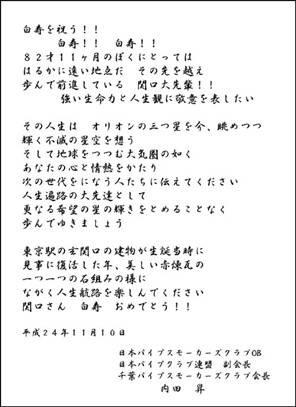 白寿を祝う！！
白寿！！　白寿！！
８２才１１ヶ月のぼくにとっては
はるかに遠い地点だ　その先を越え
歩んで前進している　関口大先輩！！
強い生命力と人生観に敬意を表したい
その人生は　オリオンの三つ星を今、眺めつつ
輝く不滅の星空を想う
そして地球をつつむ大気圏の如く
あなたの心と情熱をかたり
次の世代をになう人たちに伝えてください
人生遍路の大先達として
更なる希望の星の輝きをとめることなく
歩んでゆきましょう
東京駅の玄関口の建物が生誕当時に
見事に復活した年、美しい赤煉瓦の
一つ一つの石組みの様に
ながく人生航路を楽しんでください
関口さん　白寿　おめでとう！！
平成２４年１１月１０日
日本パイプスモーカーズクラブOB
日本パイプクラブ連盟　副会長
千葉パイプスモーカーズクラブ会長
内田　昇